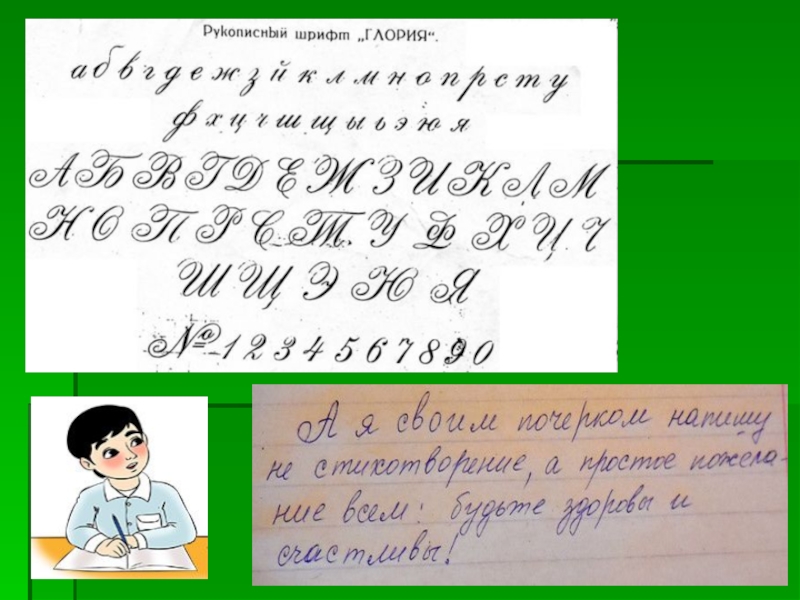 Рукописный шрифт „ГЛОРИЯ“.
а б в г д е ж з й к л м н о п р с т у
ф х ц ч ш щ ы ь э ю я
А Б В Г Д Е Ж З И К Л М
Н О П Р С Т У Ф Х Ц Ч
Ш Щ Э Ю Я
№ 1 2 3 4 5 6 7 8 9 0
А я своим почерком напишу
не стихотворение, а простое пожела-
ние всем: будьте здоровы и
счастливы!